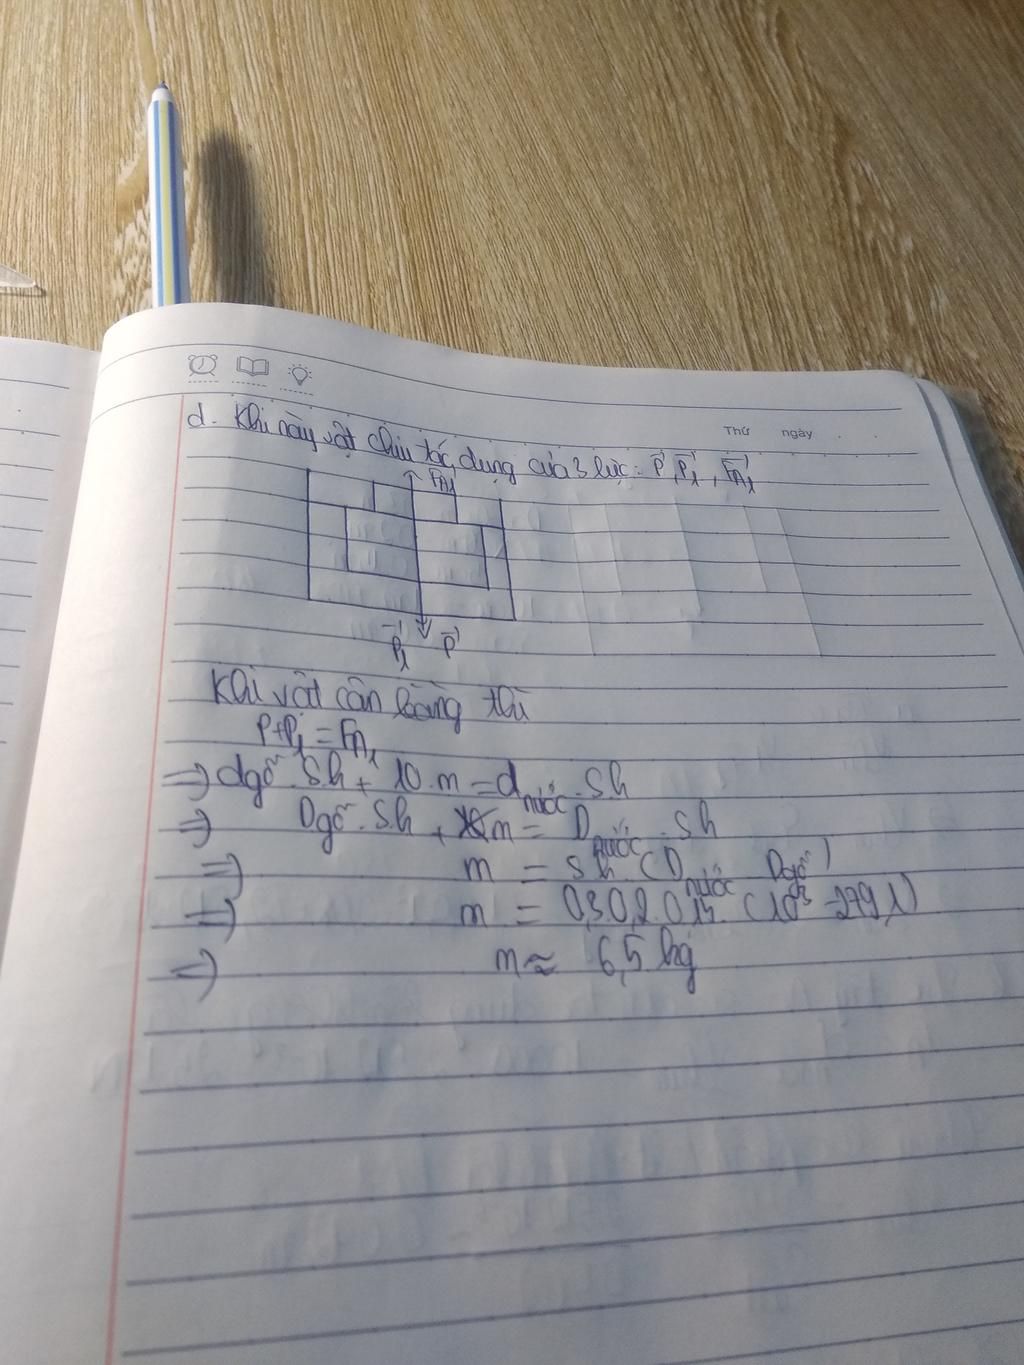 Thứ ngày
d. Khi này vật chịu tác dụng của 3 lực: P, P₁, FA₁
FA₁
P₁ P
Khi vật cân bằng thì
P+P₁ = FA₁
=> dgỗ.S.h + 10.m = dnước.S.h
=> Dgỗ.S.h + m = Dnước.S.h
=> m = S.h.(Dnước Dgỗ)
=> m = 0,3.0,2.0,15.(10³ -279,1)
=> m ≈ 6,5 kg